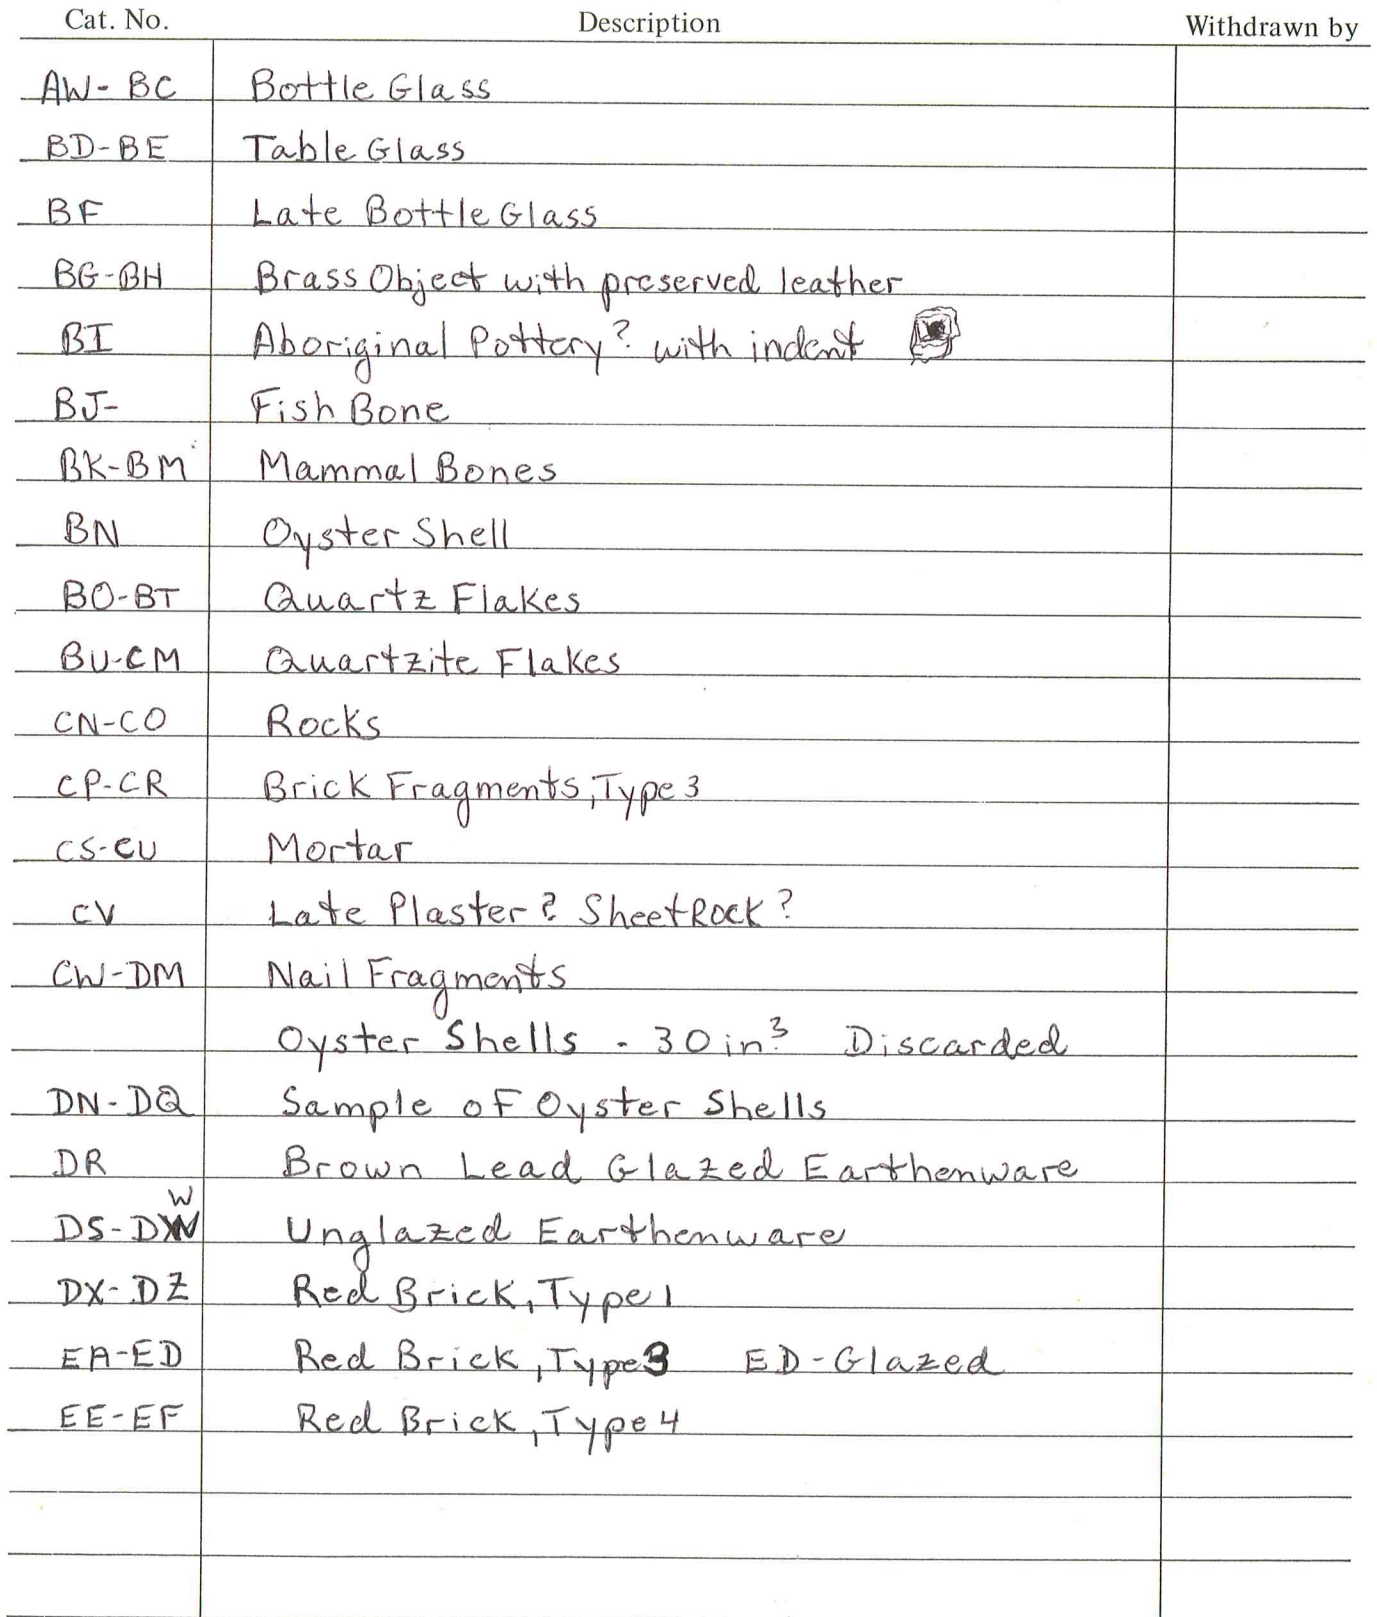 Cat. No. Description Withdrawn by
AW- BC Bottle Glass
BD-BE Table Glass
BF Late Bottle Glass
BG-BH Brass Object with preserved leather
BI Aboriginal Pottery? with indent
BJ- Fish Bone
BK-BM Mammal Bones
BN Oyster Shell
BO-BT Quartz Flakes
BU-CM Quartzite Flakes
CN-CO Rocks
CP-CR Brick Fragments, Type 3
CS-CU Mortar
CV Late Plaster? SheetRock?
CW-DM Nail Fragments
Oyster Shells - 30 in.³ Discarded
DN-DQ Sample of Oyster Shells
DR Brown Lead Glazed Earthenware
DS-DW Unglazed Earthenware
DX-DZ Red Brick, Type 1
EA-ED Red Brick, Type 3 ED-Glazed
EE-EF Red Brick, Type 4